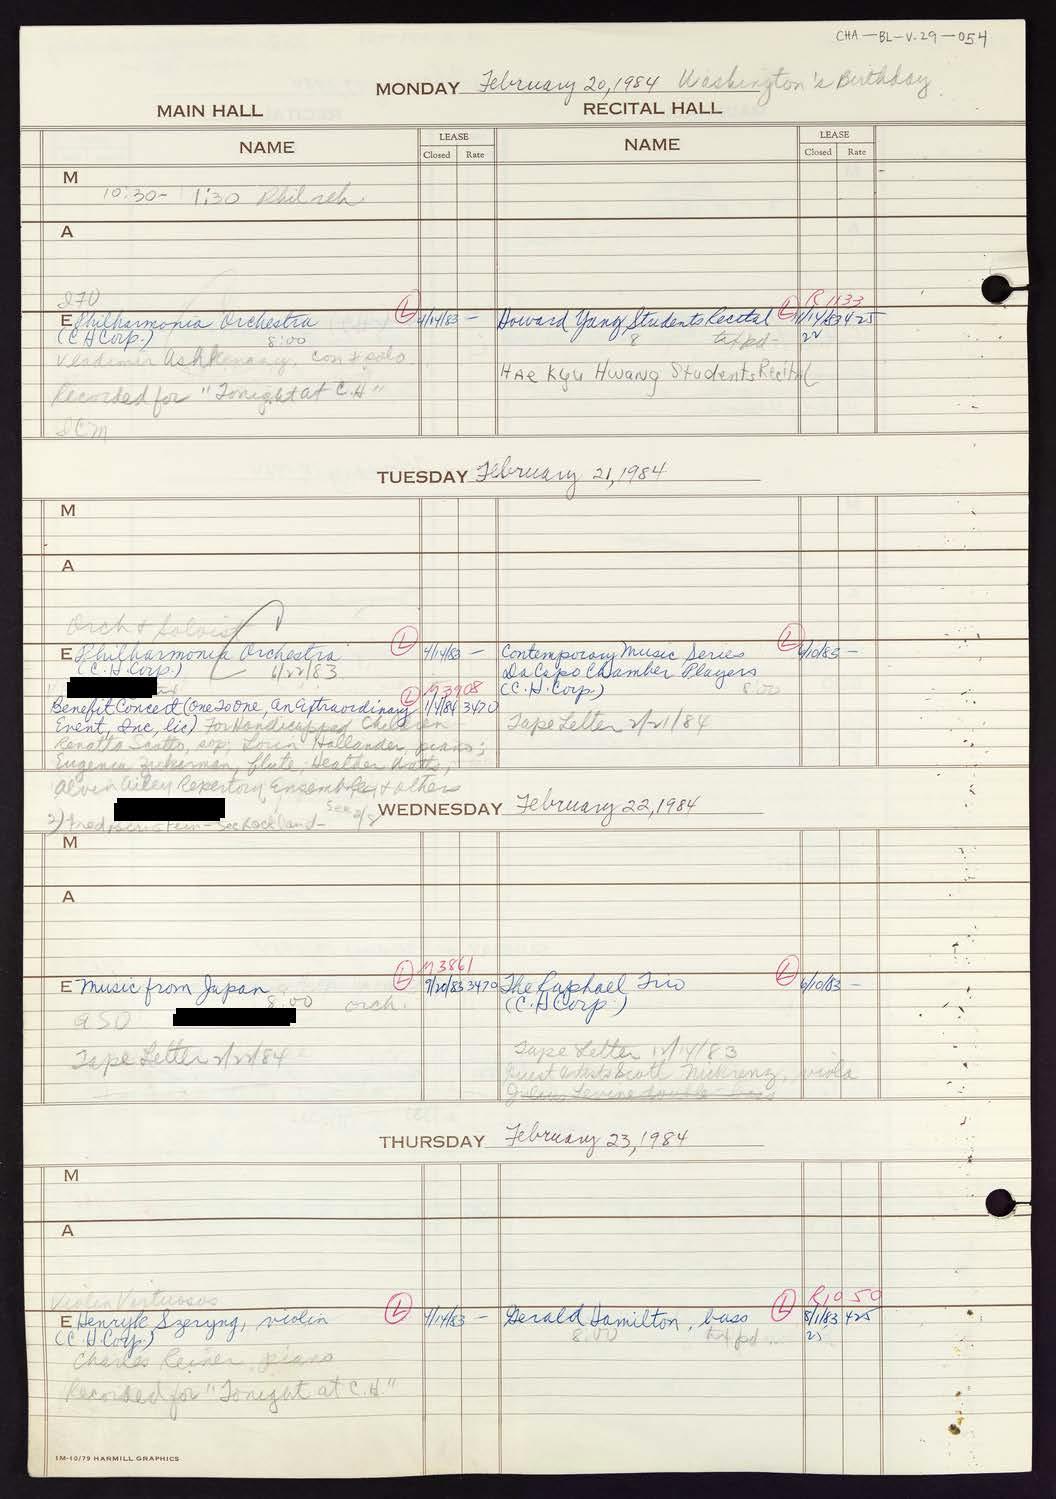 CHA-BL-V.29-054
MONDAY February 20, 1984 Washington's Birthday
MAIN HALL RECITAL HALL
NAME LEASE NAME LEASE
Closed Rate Closed Rate
M
10:30- 1:30 Phil reh
A
R 1133
E Philharmonia Orchestra L 4/14/83 - Howard Yang Students Recital L 11/14/83 425
(C H Corp.) 8:00 8 22
Vladimir Ashkenazy, con & solo
HAE Kyu Hwang Students Recital
Recorded for "Tonight at C.H"
ICM
TUESDAY February 21, 1984
M
A
Orch & Soloist
E Philharmonia Orchestra L 4/14/83 - Contemporary Music Series L 6/10/83 -
(C.H. Corp.) 6/22/83 Da Capo Chamber Players
(C.H. Corp.) 8:00
L M3908
Benefit Concert (One To One An Extraordinary 1/4/84 3470
Event, Inc, lic) For Handicapped Children Tape Letter 2/21/84
Renatta Scotto, sop; Lorin Hollander, piano;
Eugenia Zukerman, flute, Heather Watts,
Alvin Ailey Repertory Ensemble & others
See 2/8
2) Fred Bernstein - See Rockland -
WEDNESDAY February 22, 1984
M
A
M3861
E Music from Japan L 9/20/83 3470 The Raphael Trio L 6/10/83 -
8:00 orch. (C.H Corp.)
Tape Letter 2/22/84 Tape Letter 12/14/83
Guest artists Scott Nickrenz, viola
Julius Levine double bass
THURSDAY February 23, 1984
M
A
Violin Virtuosos R1050
E Henryk Szeryng, violin L 4/14/83 - Gerald Hamilton, bass L 8/1/83 425
(C.H. Corp.) 8:00 23
Charles Reiner, piano
Recorded for "Tonight at C.H."
1M-10/79 HARMILL GRAPHICS